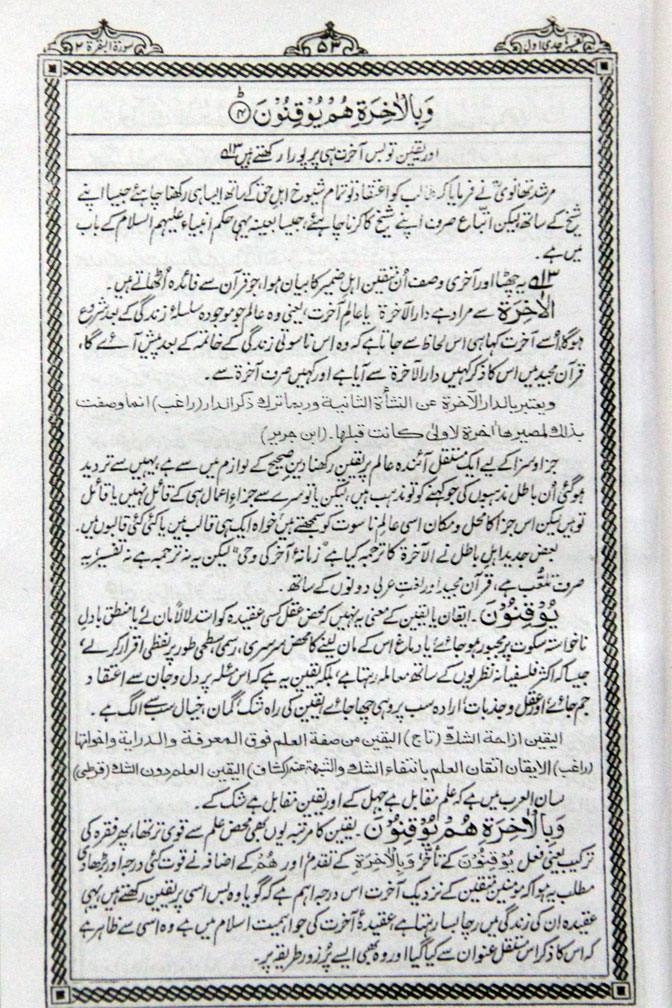 تفسیر ماجدی اول
۵۳
سورۃ البقرۃ ۲
وَبِالْاٰخِرَةِ هُمْ يُوْقِنُوْنَ ؕ ﴿۴﴾
اور یقین تو بس آخرت ہی پر پورا رکھتے ہیں ۱۳؎
مرشد تھانویؒ نے فرمایا کہ طالب کو اعتقاد تو تمام شیوخ اہل حق کے ساتھ ایسا ہی رکھنا چاہئے جیسا اپنے
شیخ کے ساتھ لیکن اتباع صرف اپنے شیخ کا کرنا چاہئے، جیسا بعینہ یہی حکم انبیاء علیہم السلام کے باب
میں ہے۔
۱۳؎ یہ چھٹا اور آخری وصف اُن متقین اہل ضمیر کا بیان ہوا، جو قرآن سے فائدہ اُٹھاتے ہیں۔
الْاٰخِرَةِ سے مراد ہے دار الآخرۃ یا عالمِ آخرت، یعنی وہ عالم جو موجودہ سلسلۂ زندگی کے بعد شروع
ہوگا، اُسے آخرت کہا ہی اس لحاظ سے جاتا ہے کہ وہ اس ناسوتی زندگی کے خاتمہ کے بعد پیش آئے گا،
قرآن مجید میں اس کا ذکر کہیں دار الآخرۃ سے آیا ہے اور کہیں صرف آخرۃ سے۔
ويعتبر بالدار الآخرة عن النشأة الثانية وربما ترك ذكر الدار (راغب) انما وصفت
بذلك لمصيرها آخرة لاولیٰ كانت قبلها۔ (ابن جریر)
جزا و سزا کے لیے ایک مستقل آئندہ عالم پر یقین رکھنا دینِ صحیح کے لوازم میں سے ہے، یہیں سے تردید
ہوگئی اُن باطل مذہبوں کی جو کہنے کو تو مذہب ہیں، لیکن یا تو سرے سے جزاءِ اعمال ہی کے قائل نہیں یا قائل
تو ہیں لیکن اس جزا کا محل و مکان اسی عالمِ ناسوت کو سمجھتے ہیں خواہ ایک ہی قالب میں یا کئی کئی قالبوں میں۔
بعض جدید اہلِ باطل نے الآخرۃ کا ترجمہ کیا ہے ”زمانۂ آخر کی وحی“ لیکن یہ نہ ترجمہ ہے نہ تفسیر یہ
صرف تلعّب ہے، قرآن مجید اور لغتِ عربی دونوں کے ساتھ۔
يُوْقِنُوْنَ۔ ایقان یا یقین کے معنی یہ نہیں کہ محض عقل کسی عقیدہ کو استدلالاً مان لے یا منطق بادلِ
ناخواستہ سکوت پر مجبور ہوجائے یا دماغ اس کے مان لینے کا محض سرسری، رسمی، سطحی طور پر لفظی اقرار کرلے،
جیسا کہ اکثر فلسفیانہ نظریوں کے ساتھ معاملہ رہتا ہے، بلکہ یقین یہ ہے کہ اس مسئلہ پر دل و جان سے اعتقاد
جم جائے اور عقل و جذبات، ارادہ سب پر وہی چھا جائے یقین کی راہ شک، گمان، خیال سب سے الگ ہے۔
اليقين ازاحة الشك (تاج) اليقين من صفة العلم فوق المعرفة والدراية واخواتها
(راغب) الايقان اتقان العلم بانتفاء الشك والشبهة عنه (کشاف) اليقين العلم دون الشك (قرطبی)
لسان العرب میں ہے کہ علم مقابل ہے جہل کے اور یقین مقابل ہے شک کے۔
وَبِالْاٰخِرَةِ هُمْ يُوْقِنُوْنَ۔ یقین کا مرتبہ یوں بھی محض علم سے قوی تر تھا، پھر فقرہ کی
ترکیب یعنی فعل يُوْقِنُوْنَ کے تأخر وَبِالْاٰخِرَةِ کے تقدم اور هُمْ کے اضافہ نے قوت کئی درجہ اور بڑھادی
مطلب یہ ہوا کہ مومنین متقین کے نزدیک آخرت اس درجہ اہم ہے کہ گویا وہ بس اسی پر یقین رکھتے ہیں یہی
عقیدہ ان کی زندگی میں رچا بسا رہتا ہے، عقیدۂ آخرت کی جو اہمیت اسلام میں ہے وہ اسی سے ظاہر ہے
کہ اس کا ذکر اس مستقل عنوان سے کیا گیا اور وہ بھی ایسے پُرزور طریقہ پر۔